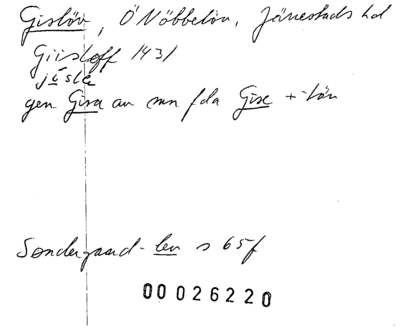 Gislöv, Ö Nöbbelöv, Järrestads hd
Giisloff 1431
jísle
gen Gisa av mn fda Gise + -löv
Søndergaard -lev s 65f
00026220